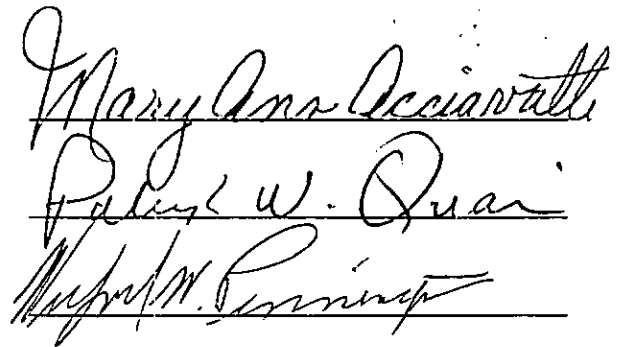 Mary Ann Acciavatti
Patrick W. Quai
W. Pennington